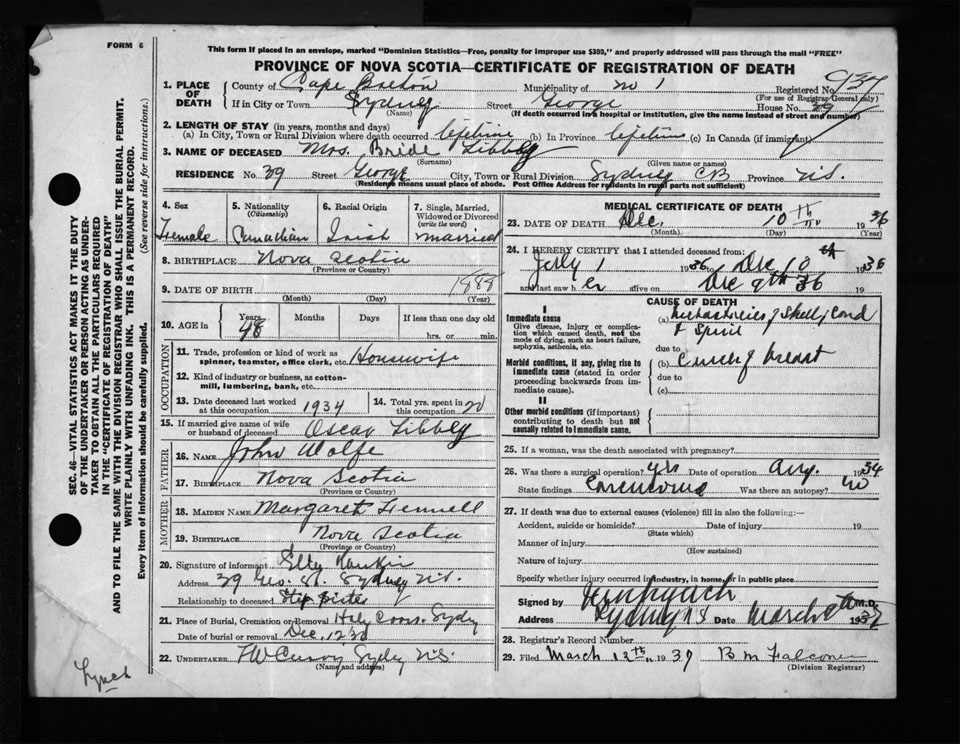 FORM 6
This form if placed in an envelope, marked "Dominion Statistics—Free, penalty for improper use $300," and properly addressed will pass through the mail "FREE"
PROVINCE OF NOVA SCOTIA—CERTIFICATE OF REGISTRATION OF DEATH
SEC. 46—VITAL STATISTICS ACT MAKES IT THE DUTY
OF THE UNDERTAKER OR PERSON ACTING AS UNDER-
TAKER TO OBTAIN ALL THE PARTICULARS REQUIRED
IN THE "CERTIFICATE OF REGISTRATION OF DEATH"
AND TO FILE THE SAME WITH THE DIVISION REGISTRAR WHO SHALL ISSUE THE BURIAL PERMIT.
WRITE PLAINLY WITH UNFADING INK. THIS IS A PERMANENT RECORD.
Every item of information should be carefully supplied. (See reverse side for instructions.)
1. PLACE OF DEATH
County of Cape Breton Municipality of no 1 Registered No. 937
(For use of Registrar General only)
If in City or Town Sydney Street George House No. 39
(Name) (If death occurred in a hospital or institution, give the name instead of street and number)
2. LENGTH OF STAY (in years, months and days)
(a) In City, Town or Rural Division where death occurred lifetime (b) In Province lifetime (c) In Canada (if immigrant)
3. NAME OF DECEASED Mrs. Bride Libbey
(Surname) (Given name or names)
RESIDENCE No. 39 Street George City, Town or Rural Division Sydney CB Province N.S.
(Residence means usual place of abode. Post Office Address for residents in rural parts not sufficient)
4. Sex 5. Nationality (Citizenship) 6. Racial Origin 7. Single, Married, Widowed or Divorced (write the word)
Female Canadian Irish married
8. BIRTHPLACE Nova Scotia
(Province or Country)
9. DATE OF BIRTH 1888
(Month) (Day) (Year)
10. AGE in Years Months Days If less than one day
48 hrs. or min.
OCCUPATION
11. Trade, profession or kind of work as spinner, teamster, office clerk, etc. Housewife
12. Kind of industry or business, as cotton-mill, lumbering, bank, etc.
13. Date deceased last worked at this occupation 1934 14. Total yrs. spent in this occupation 20
15. If married give name of wife or husband of deceased Oscar Libbey
FATHER
16. NAME John Wolfe
17. BIRTHPLACE Nova Scotia
(Province or Country)
MOTHER
18. MAIDEN NAME Margaret Fennell
19. BIRTHPLACE Nova Scotia
(Province or Country)
20. Signature of informant
Address 39 Geo. St. Sydney N.S.
Relationship to deceased Step Sister
21. Place of Burial, Cremation or Removal Holy Cross. Sydy
Date of burial or removal Dec. 12
22. UNDERTAKER Sydy N.S.
(Name and address)
MEDICAL CERTIFICATE OF DEATH
23. DATE OF DEATH Dec. 10th 1936
(Month) (Day) (Year)
24. I HEREBY CERTIFY that I attended deceased from:
July 1 1936 to Dec 10th 1936
and last saw her alive on Dec 9th 36 19
CAUSE OF DEATH
I
Immediate cause
Give disease, injury or complication which caused death, not the mode of dying, such as heart failure, asphyxia, asthenia, etc.
(a) Metastasies of Skull, Cord
due to
Morbid conditions, if any, giving rise to immediate cause (stated in order proceeding backwards from immediate cause).
(b) breast
due to
(c)
II
Other morbid conditions (if important) contributing to death but not causally related to immediate cause.
25. If a woman, was the death associated with pregnancy?
26. Was there a surgical operation? yes Date of operation Aug. 1934
State findings Carcinoma Was there an autopsy? no
27. If death was due to external causes (violence) fill in also the following:—
Accident, suicide or homicide? Date of injury 19
(State which)
Manner of injury
(How sustained)
Nature of injury
Specify whether injury occurred in industry, in home, or in public place
Signed by M.D.
Address Sydney N S Date March 1937
28. Registrar's Record Number
29. Filed March 12th, 1937 B M Falconer
(Division Registrar)
Lynch